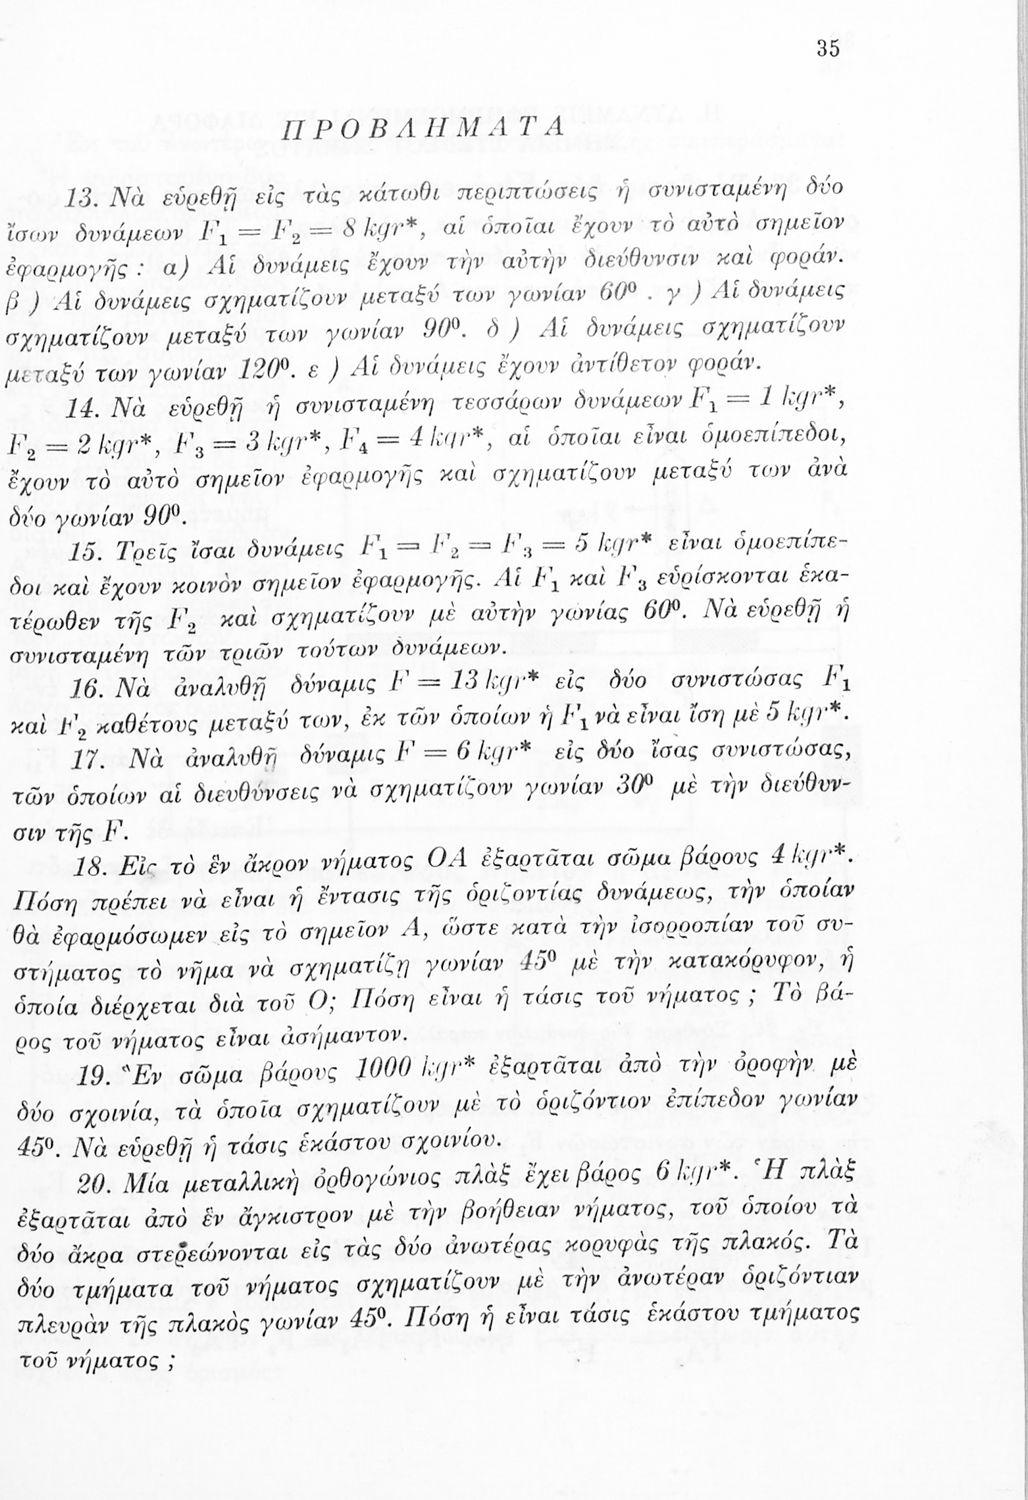 35
ΠΡΟΒΛΗΜΑΤΑ
13. Νὰ εὑρεθῇ εἰς τὰς κάτωθι περιπτώσεις ἡ συνισταμένη δύο
ἴσων δυνάμεων F₁ = F₂ = 8 kgr*, αἱ ὁποῖαι ἔχουν τὸ αὐτὸ σημεῖον
ἐφαρμογῆς : α) Αἱ δυνάμεις ἔχουν τὴν αὐτὴν διεύθυνσιν καὶ φοράν.
β ) Αἱ δυνάμεις σχηματίζουν μεταξύ των γωνίαν 60⁰ . γ ) Αἱ δυνάμεις
σχηματίζουν μεταξύ των γωνίαν 90⁰. δ ) Αἱ δυνάμεις σχηματίζουν
μεταξύ των γωνίαν 120⁰. ε ) Αἱ δυνάμεις ἔχουν ἀντίθετον φοράν.
14. Νὰ εὑρεθῇ ἡ συνισταμένη τεσσάρων δυνάμεων F₁ = 1 kgr*,
F₂ = 2 kgr*, F₃ = 3 kgr*, F₄ = 4 kgr*, αἱ ὁποῖαι εἶναι ὁμοεπίπεδοι,
ἔχουν τὸ αὐτὸ σημεῖον ἐφαρμογῆς καὶ σχηματίζουν μεταξύ των ἀνὰ
δύο γωνίαν 90⁰.
15. Τρεῖς ἴσαι δυνάμεις F₁ = F₂ = F₃ = 5 kgr* εἶναι ὁμοεπίπε-
δοι καὶ ἔχουν κοινὸν σημεῖον ἐφαρμογῆς. Αἱ F₁ καὶ F₃ εὑρίσκονται ἑκα-
τέρωθεν τῆς F₂ καὶ σχηματίζουν μὲ αὐτὴν γωνίας 60⁰. Νὰ εὑρεθῇ ἡ
συνισταμένη τῶν τριῶν τούτων δυνάμεων.
16. Νὰ ἀναλυθῇ δύναμις F = 13 kgr* εἰς δύο συνιστώσας F₁
καὶ F₂ καθέτους μεταξύ των, ἐκ τῶν ὁποίων ἡ F₁ νὰ εἶναι ἴση μὲ 5 kgr*.
17. Νὰ ἀναλυθῇ δύναμις F = 6 kgr* εἰς δύο ἴσας συνιστώσας,
τῶν ὁποίων αἱ διευθύνσεις νὰ σχηματίζουν γωνίαν 30⁰ μὲ τὴν διεύθυν-
σιν τῆς F.
18. Εἰς τὸ ἓν ἄκρον νήματος ΟΑ ἐξαρτᾶται σῶμα βάρους 4 kgr*.
Πόση πρέπει νὰ εἶναι ἡ ἔντασις τῆς ὁριζοντίας δυνάμεως, τὴν ὁποίαν
θὰ ἐφαρμόσωμεν εἰς τὸ σημεῖον Α, ὥστε κατὰ τὴν ἰσορροπίαν τοῦ συ-
στήματος τὸ νῆμα νὰ σχηματίζῃ γωνίαν 45⁰ μὲ τὴν κατακόρυφον, ἡ
ὁποία διέρχεται διὰ τοῦ Ο; Πόση εἶναι ἡ τάσις τοῦ νήματος ; Τὸ βά-
ρος τοῦ νήματος εἶναι ἀσήμαντον.
19. Ἓν σῶμα βάρους 1000 kgr* ἐξαρτᾶται ἀπὸ τὴν ὀροφὴν μὲ
δύο σχοινία, τὰ ὁποῖα σχηματίζουν μὲ τὸ ὁριζόντιον ἐπίπεδον γωνίαν
45⁰. Νὰ εὑρεθῇ ἡ τάσις ἑκάστου σχοινίου.
20. Μία μεταλλικὴ ὀρθογώνιος πλὰξ ἔχει βάρος 6 kgr*. Ἡ πλὰξ
ἐξαρτᾶται ἀπὸ ἓν ἄγκιστρον μὲ τὴν βοήθειαν νήματος, τοῦ ὁποίου τὰ
δύο ἄκρα στερεώνονται εἰς τὰς δύο ἀνωτέρας κορυφὰς τῆς πλακός. Τὰ
δύο τμήματα τοῦ νήματος σχηματίζουν μὲ τὴν ἀνωτέραν ὁριζόντιαν
πλευρὰν τῆς πλακὸς γωνίαν 45⁰. Πόση ἡ εἶναι τάσις ἑκάστου τμήματος
τοῦ νήματος ;